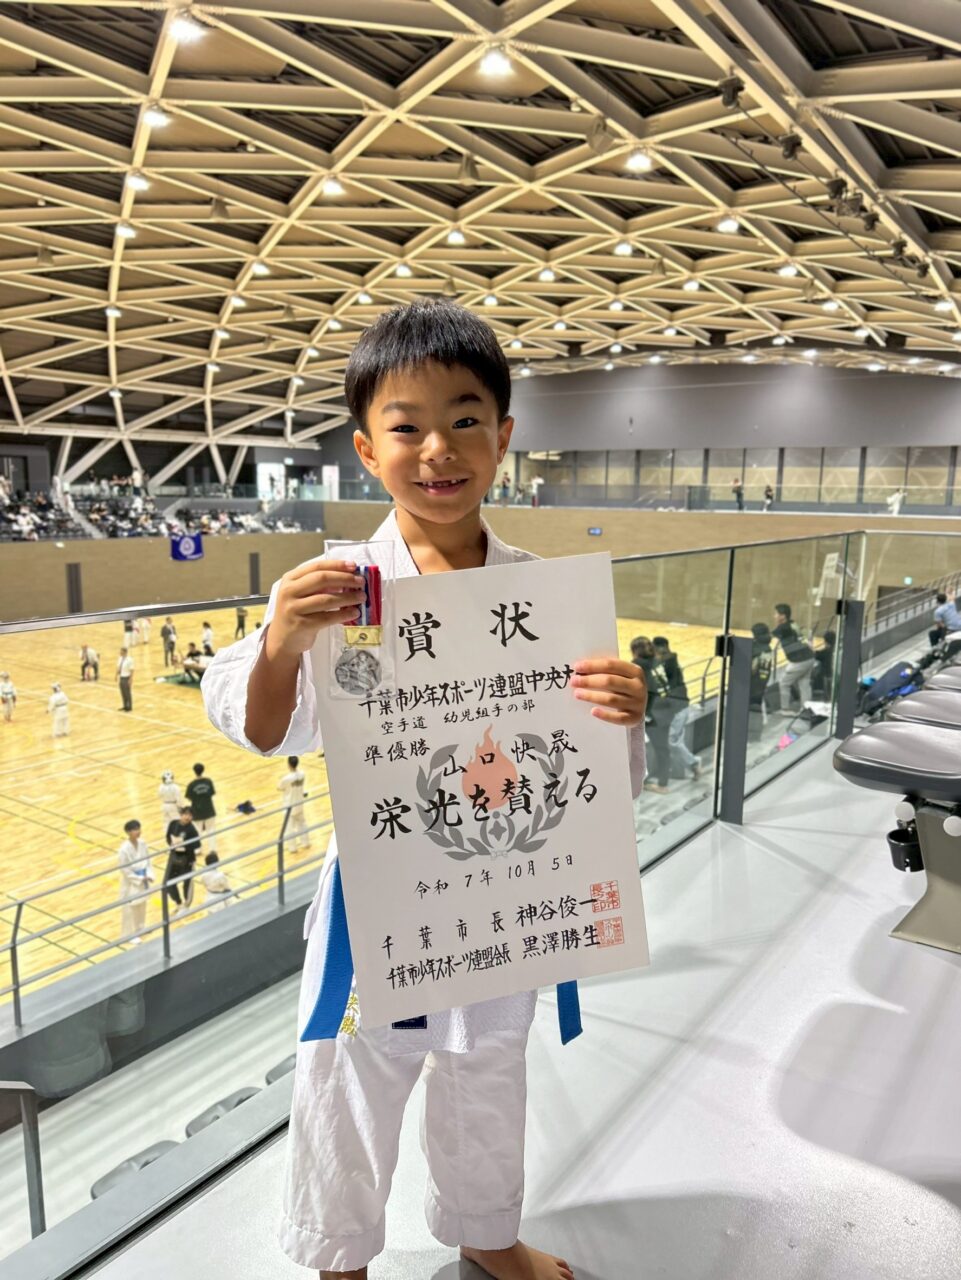 賞状
千葉市少年スポーツ連盟中央大
空手道 幼児組手の部
準優勝 山口快晟
栄光を賛える
令和7年10月5日
千葉市長 神谷俊一
千葉市少年スポーツ連盟会長 黒澤勝生